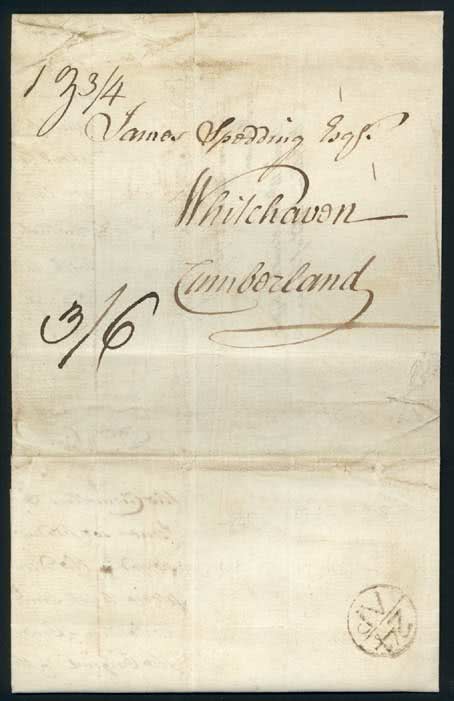 1 Z 3/4
James Spedding Esqr.
Whitehaven
Cumberland
3/6
24